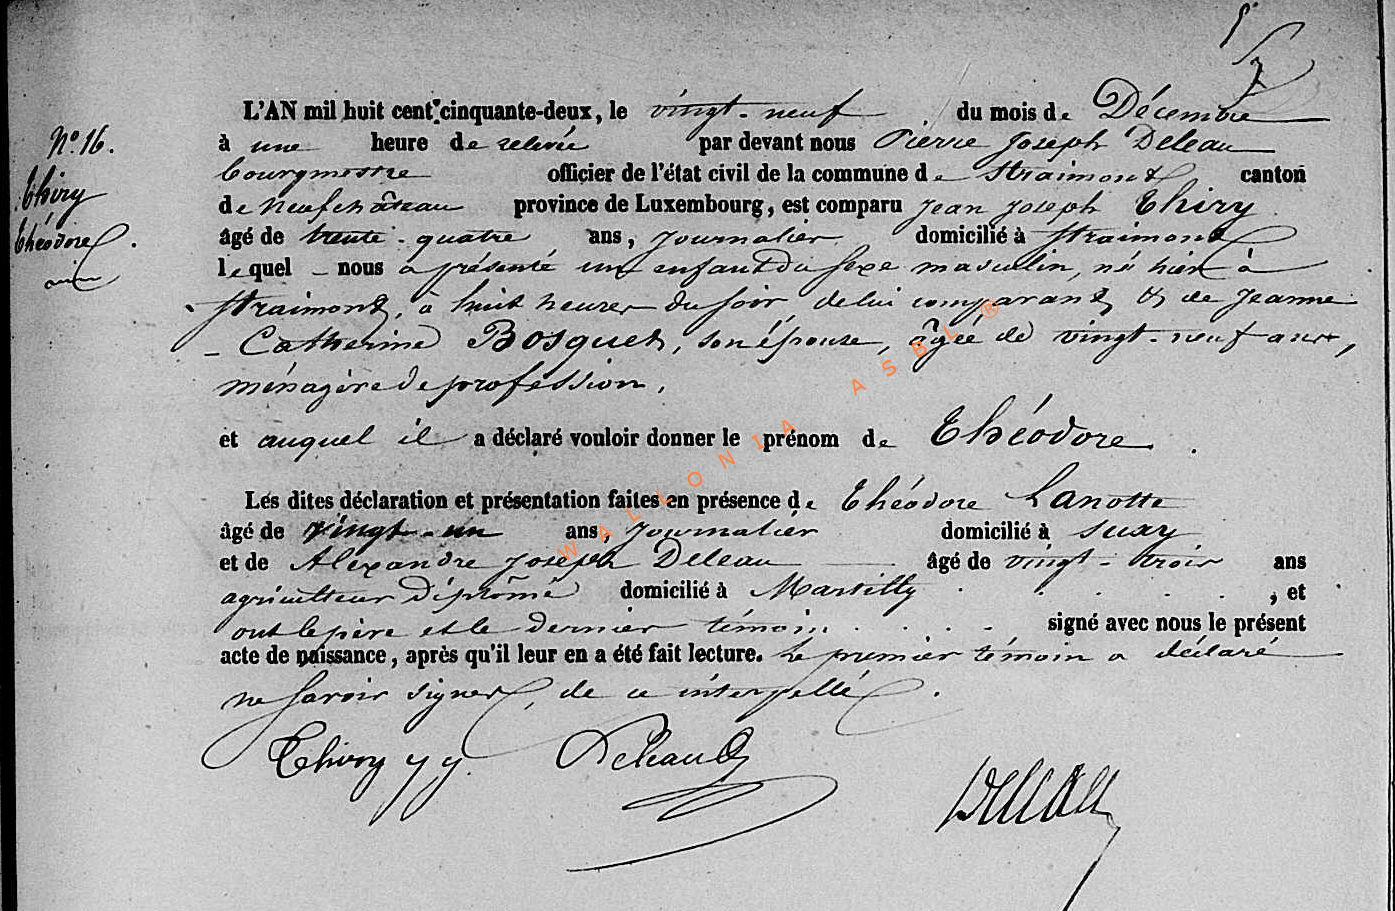 L'AN mil huit cent cinquante-deux, le vingt-neuf du mois de Décembre
N° 16. à une heure de relevée par devant nous Pierre Joseph Deleau
bourgmestre officier de l'état civil de la commune de Straimont canton
Thiry de Neufchâteau province de Luxembourg, est comparu Jean Joseph Thiry
Théodore. âgé de trente-quatre ans, Journalier domicilié à Straimont
lequel nous a présenté un enfant du sexe masculin, né hier à
Straimont, à huit heures du soir, de lui comparant & de Jeanne
Catherine Bosquet, son épouse, âgée de vingt-neuf ans,
ménagère de profession,
et auquel il a déclaré vouloir donner le prénom de Théodore.
Les dites déclaration et présentation faites en présence de Théodore Lanotte
âgé de vingt-un ans, Journalier domicilié à Suxy
et de Alexandre Joseph Deleau âgé de vingt-trois ans
agriculteur diplômé domicilié à Martilly , et
ont le père et le dernier témoin signé avec nous le présent
acte de naissance, après qu'il leur en a été fait lecture. Le premier témoin a déclaré
ne savoir signer, de ce interpellé.
Thiry J J. Deleau
Deleau
WALLONIA ASBL ®